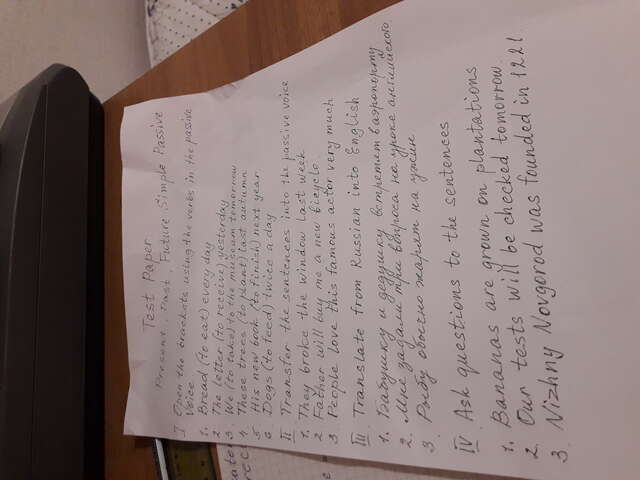 Test Paper
Present, Past, Future Simple Passive
I Open the brackets using the verbs in the passive
Voice
1. Bread (to eat) every day
2 The letter (to receive) yesterday
3. We (to take) to the museum tomorrow
4. These trees (to plant) last autumn
5 His new book (to finish) next year
6 Dogs (to feed) twice a day
II Transfer the sentences into the passive voice
1. They broke the window last week
2 Father will buy me a new bicycle
3 People love this famous actor very much
III Translate from Russian into English
1. Бабушку и дедушку встретят в аэропорту
2. Мне задали три вопроса на уроке английского
3. Рыбу обычно жарят на ужин
IV Ask questions to the sentences
1. Bananas are grown on plantations
2. Our tests will be checked tomorrow.
3 Nizhny Novgorod was founded in 1221.